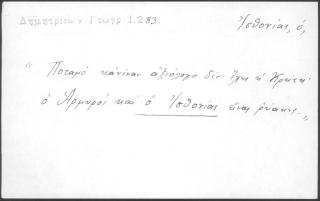 Δημητρίεων Γεωγρ 1.283
Ἰσθονίας, ὁ,
" Ποταμὸ κἀνέναν ἀξιόλογο δὲν ἔχει ἡ Κρήτη·
ὁ Ἀρμυρός καὶ ὁ Ἰσθονίας εἶναι ρύακες. "